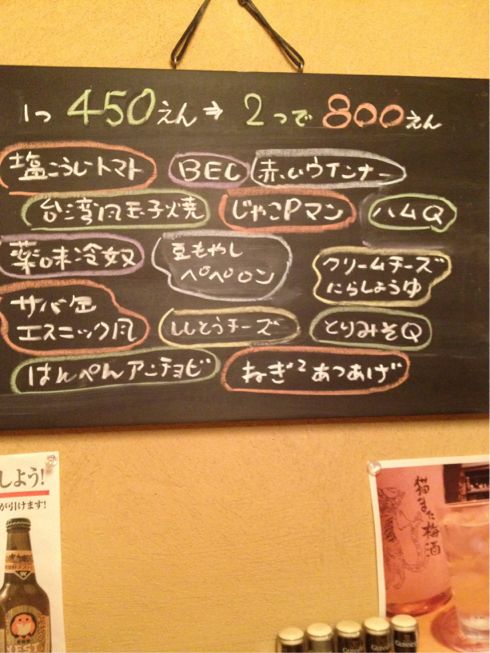 1つ 450えん⇒2つで 800えん
塩こうじトマト BEC 赤いウインナー
台湾風玉子焼 じゃこPマン ハムQ
薬味冷奴 豆もやし
ペペロン
クリームチーズ
にらしょうゆ
サバ缶
エスニック風
ししとうチーズ とりみそQ
はんぺんアンチョビ ねぎ²あつあげ
しよう!
が引けます!
猫また梅酒
NEST